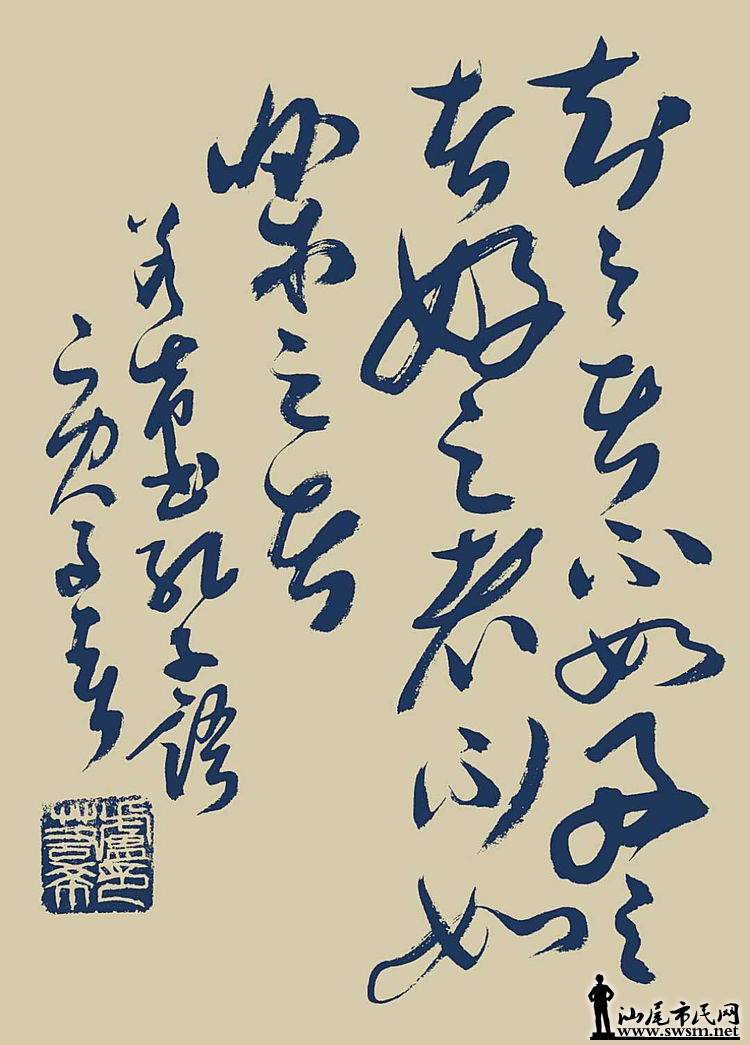 知之者不如好之
者好之者不如
樂之者
若希書孔子語
子春
汕尾市民网
www.swsm.net